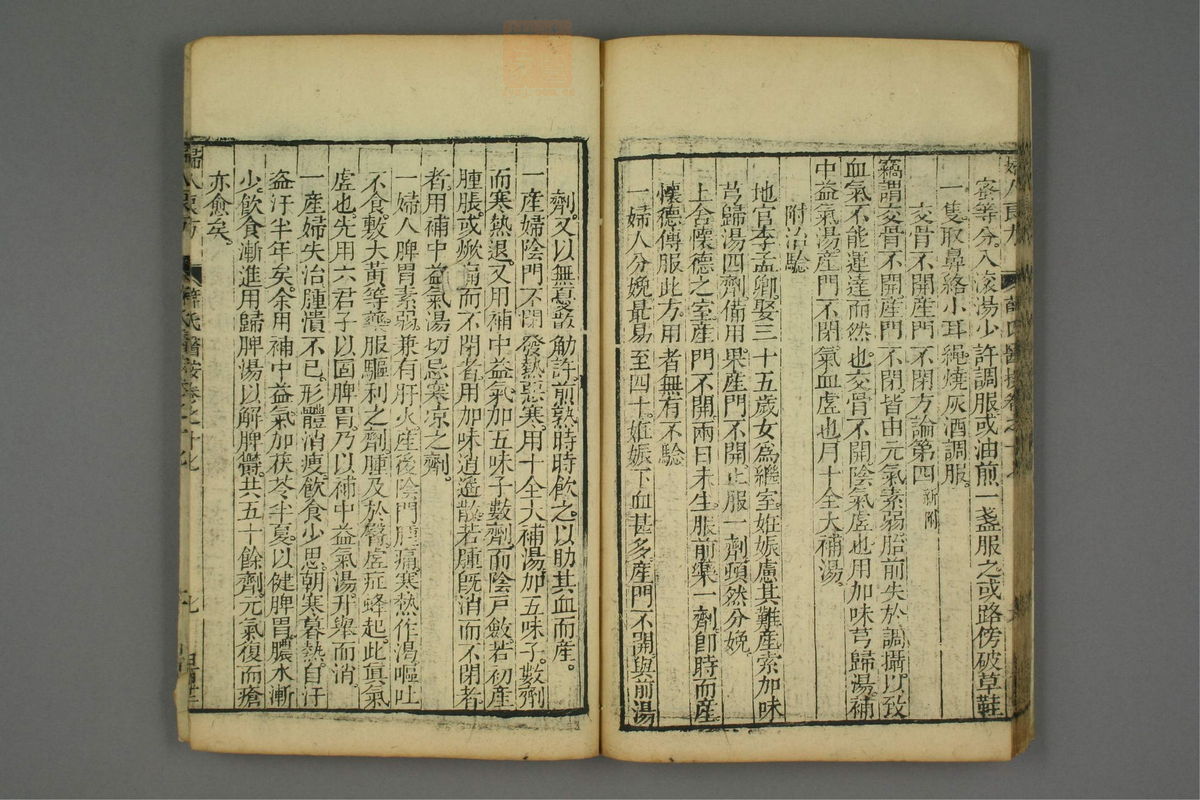 蜜等分入滚湯少許調服或油煎一盞服之或路傍破草鞋
一隻取鼻絡小耳繩燒灰酒調服。
交骨不開産門不閉方論第四 新附
竊謂交骨不開産門不閉皆由元氣素弱胎前失於調攝以致
血氣不能運達而然也交骨不開陰氣虚也用加味芎歸湯補
中益氣湯産門不閉氣血虚也用十全大補湯。
附治驗
地官李孟卿娶三十五歲女爲繼室姙娠慮其難產索加味
芎歸湯四劑備用果産門不開止服一劑頓然分娩
上舍懷德之室産門不開兩日未生服前藥一劑即時而産
懷德傳服此方用者無有不驗
一婦人分娩最易至四十姙娠下血甚多産門不開與前湯
劑又以無憂散斛許煎熟時時飲之以助其血而産。
一産婦陰門不閉發熱惡寒用十全大補湯加五味子數劑
而寒熱退又用補中益氣加五味子數劑而陰戸斂若初産
腫脹或焮痛而不閉者用加味逍遥散若腫既消而不閉者
者用補中益氣湯切忌寒凉之劑。
一婦人脾胃素弱兼有肝火産後陰門腫痛寒熱作渴嘔吐
不食敷大黄等藥服驅利之劑腫及於臀虚症蜂起此眞氣
虚也先用六君子以固脾胃乃以補中益氣湯升舉而消
一産婦失治腫潰不已形體消瘦飲食少思朝寒暮熱自汗
盗汗半年矣余用補中益氣加茯苓半夏以健脾胃膿水漸
少飲食漸進用歸脾湯以解脾鬱共五十餘劑元氣復而瘡
亦愈矣。